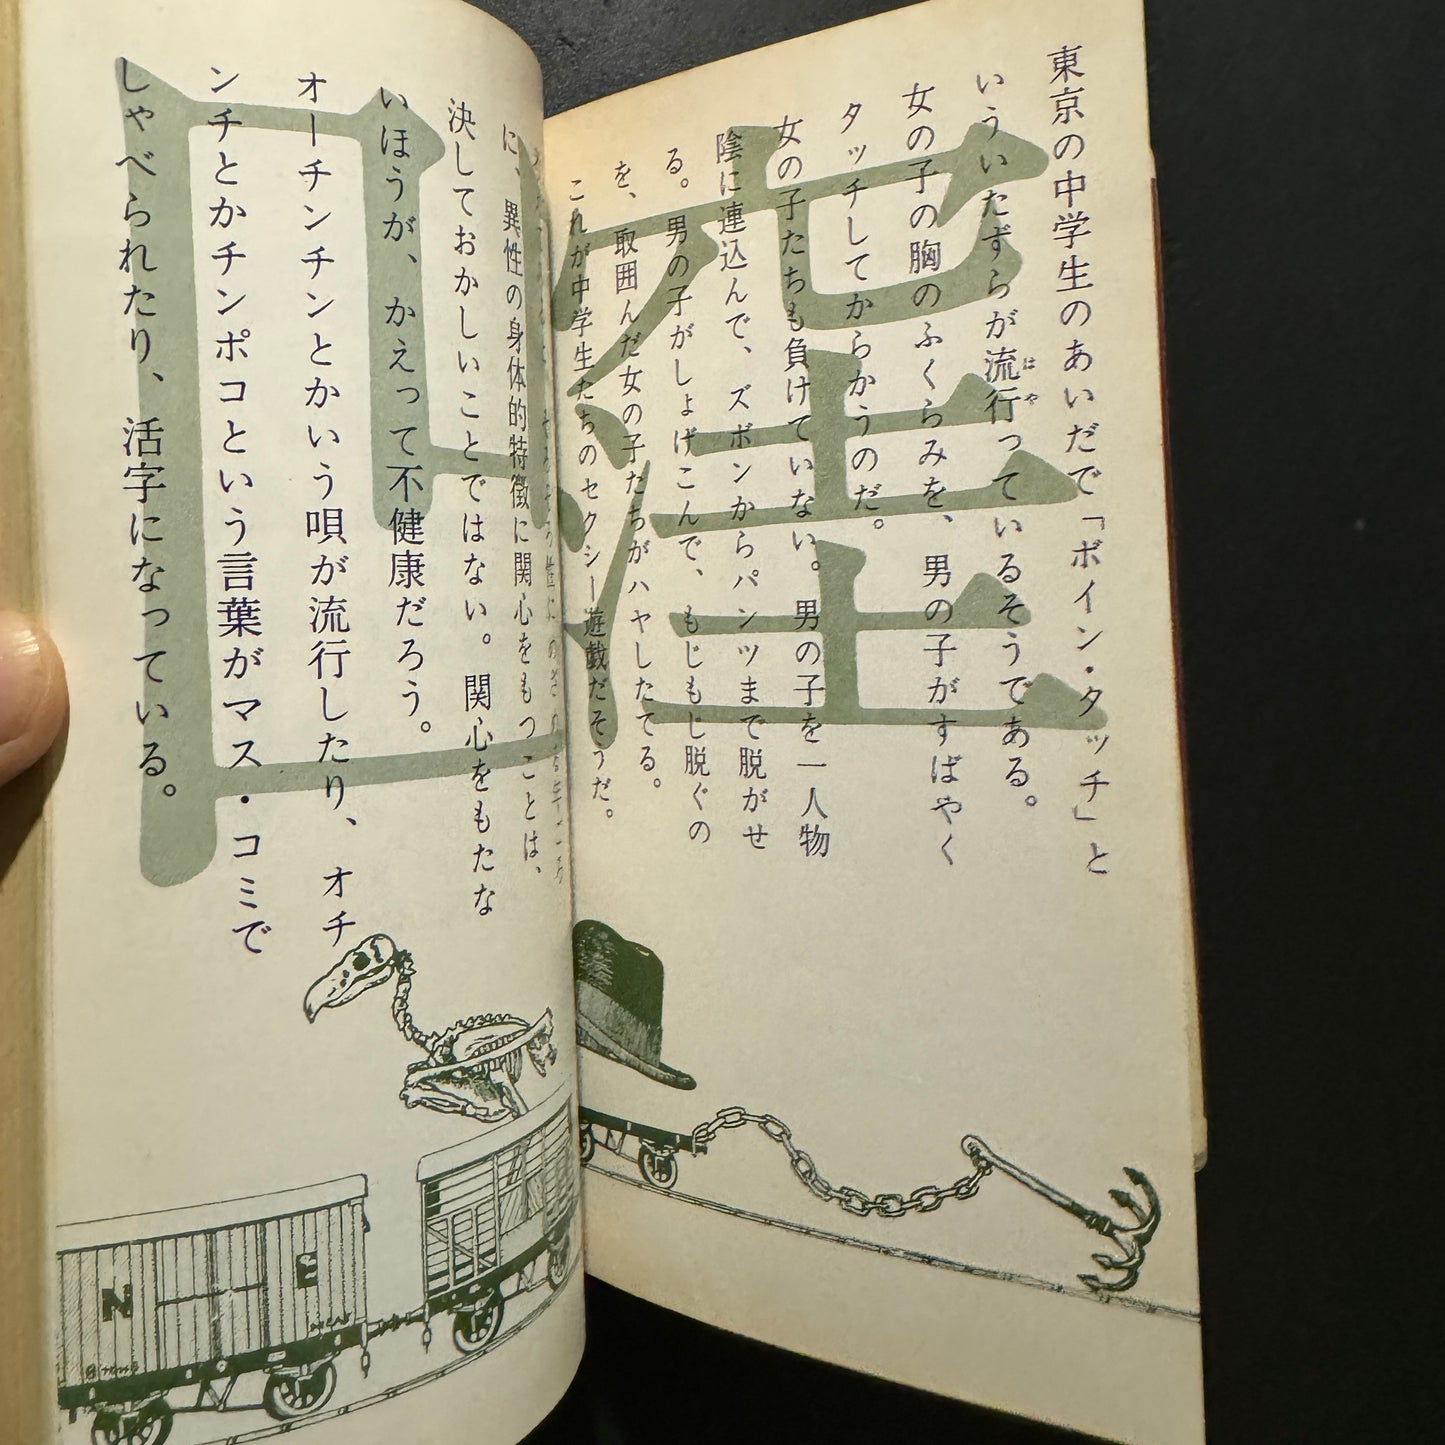 東京の中学生のあいだで「ボイン・タッチ」と
いういたずらが流行っているそうである。
はや
女の子の胸のふくらみを、男の子がすばやく
タッチしてからかうのだ。
女の子たちも負けていない。男の子を一人物
陰に連込んで、ズボンからパンツまで脱がせ
る。男の子がしょげこんで、もじもじ脱ぐの
を、取囲んだ女の子たちがハヤしたてる。
これが中学生たちのセクシー遊戯だそうだ。
に、異性の身体的特徴に関心をもつことは、
決しておかしいことではない。関心をもたな
いほうが、かえって不健康だろう。
オーチンチンとかいう唄が流行したり、オチ
ンチとかチンポコという言葉がマス・コミで
しゃべられたり、活字になっている。
N